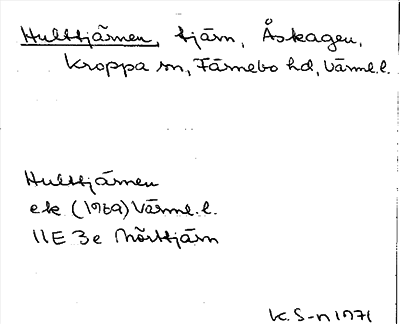 Hulttjärnen, tjärn, Åskagen,
Kroppa sn, Färnebo hd, Värml.l.
Hulttjärnen
ek (1969) Värml.l.
11E 3e Mörttjärn
K.S-n 1971